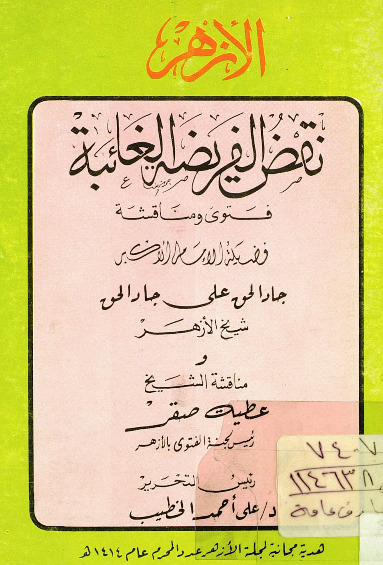 الأزهر
نقض الفريضة الغائبة
فتوى ومناقشة
فضيلة الإمام الأكبر
جاد الحق على جاد الحق
شيخ الأزهر
و
مناقشة الشيخ
عطية صقر
رئيس لجنة الفتوى بالأزهر
رئيس التحرير
د/ على أحمد الخطيب
هدية مجانية لمجلة الأزهر عدد المحرم عام ١٤١٤ هـ